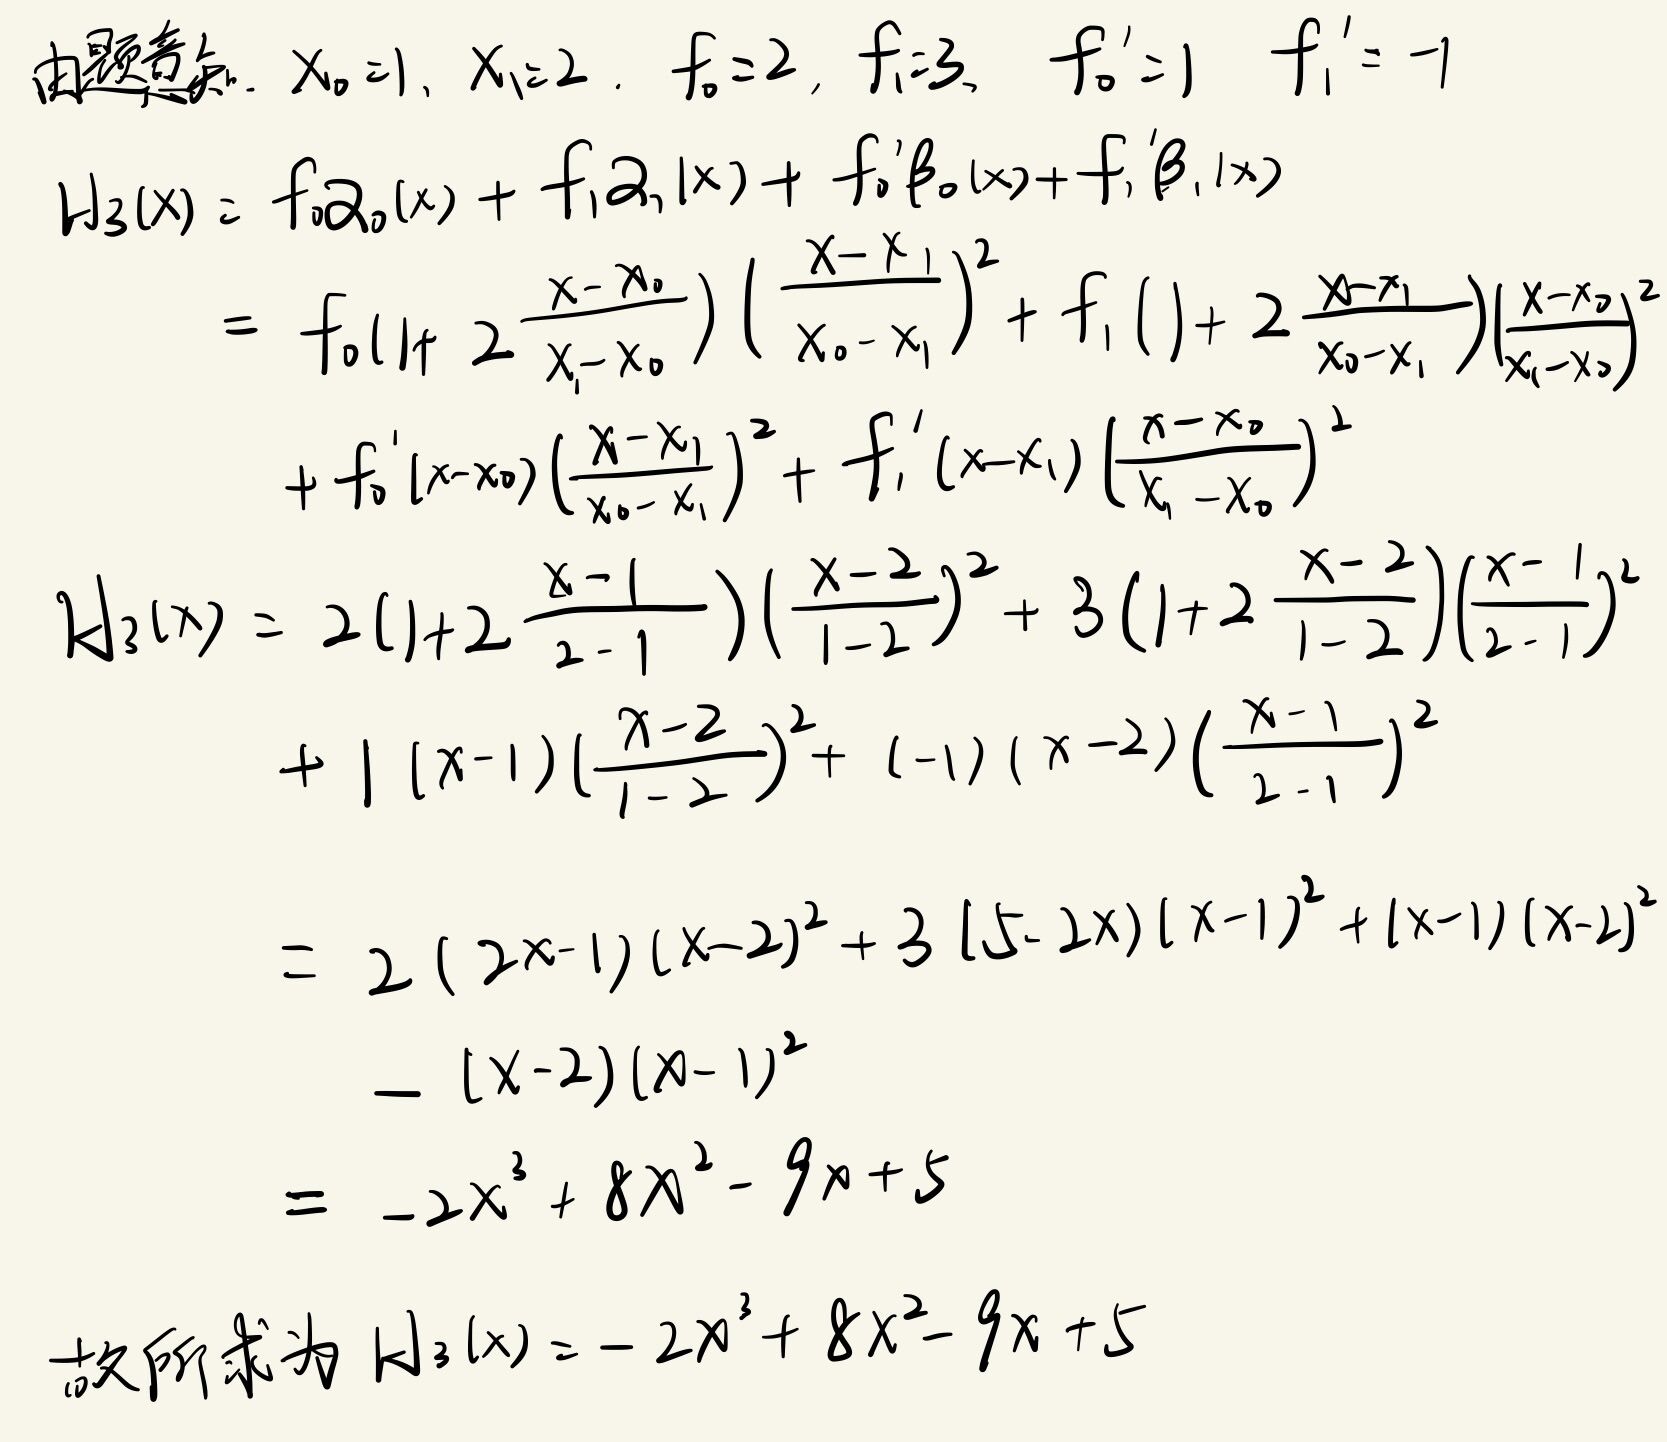 由题意知. x₀=1, x₁=2. f₀=2, f₁=3, f₀'=1 f₁'=-1
H₃(x) = f₀α₀(x) + f₁α₁(x) + f₀'β₀(x) + f₁'β₁(x)
= f₀(1+2\frac{x-x₀}{x₁-x₀})(\frac{x-x₁}{x₀-x₁})² + f₁(1+2\frac{x-x₁}{x₀-x₁})(\frac{x-x₀}{x₁-x₀})²
+ f₀'(x-x₀)(\frac{x-x₁}{x₀-x₁})² + f₁'(x-x₁)(\frac{x-x₀}{x₁-x₀})²
H₃(x) = 2(1+2\frac{x-1}{2-1})(\frac{x-2}{1-2})² + 3(1+2\frac{x-2}{1-2})(\frac{x-1}{2-1})²
+ 1(x-1)(\frac{x-2}{1-2})² + (-1)(x-2)(\frac{x-1}{2-1})²
= 2(2x-1)(x-2)² + 3(5-2x)(x-1)² + (x-1)(x-2)²
- (x-2)(x-1)²
= -2x³ + 8x² - 9x + 5
故所求为 H₃(x) = -2x³ + 8x² - 9x + 5